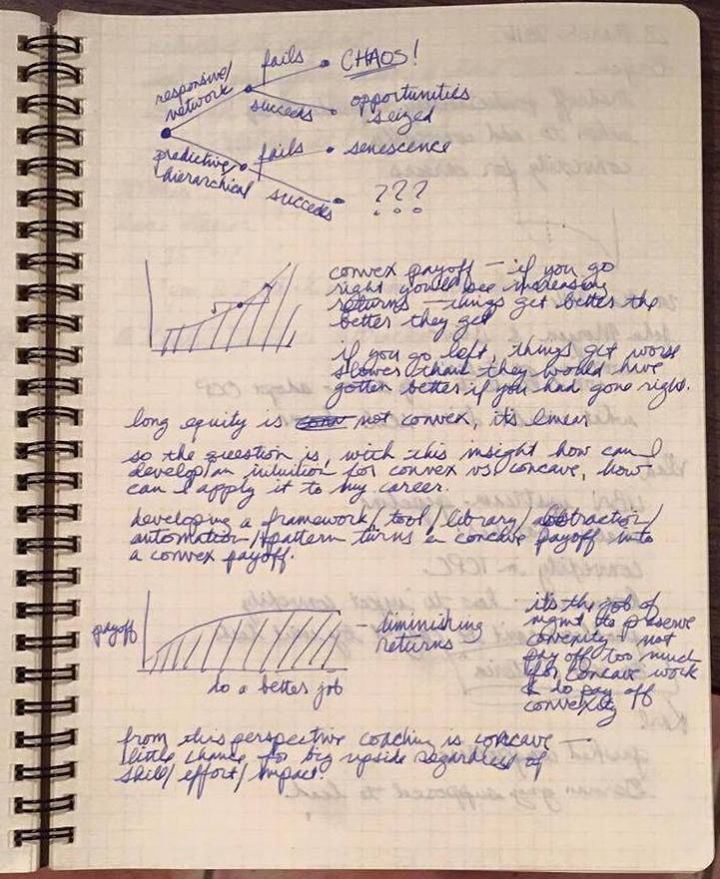 fails
CHAOS!
responsive/
network
succeeds
opportunities
seized
predictive
hierarchical
fails
senescence
succeeds
???
convex payoff — if you go
right you'll see increasing
returns — things get better the
better they get
if you go left, things get worse
slower than they would have
gotten better if you had gone right.
long equity is not convex, it's linear
so the question is, with this insight how can I
develop an intuition for convex vs concave, how
can I apply it to my career.
developing a framework/tool/library/abstraction/
automation/pattern turns a concave payoff into
a convex payoff.
payoff
diminishing
returns
do a better job
it's the job of
mgmt to preserve
convexity, not
pay off too much
for concave work
& do pay off
convexity
from this perspective coaching is concave —
little chance for big upside regardless of
skill/effort/impact.